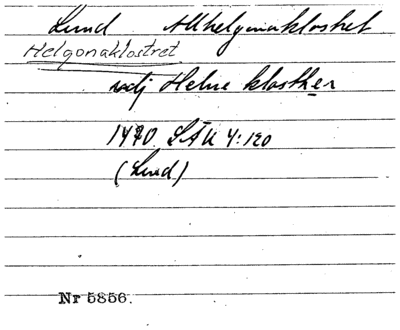 Lund Allhelgonaklostret
Helgonaklostret
udj Helne klosther
1470 LÄU 4:120
(Lund)
Nr 5856.